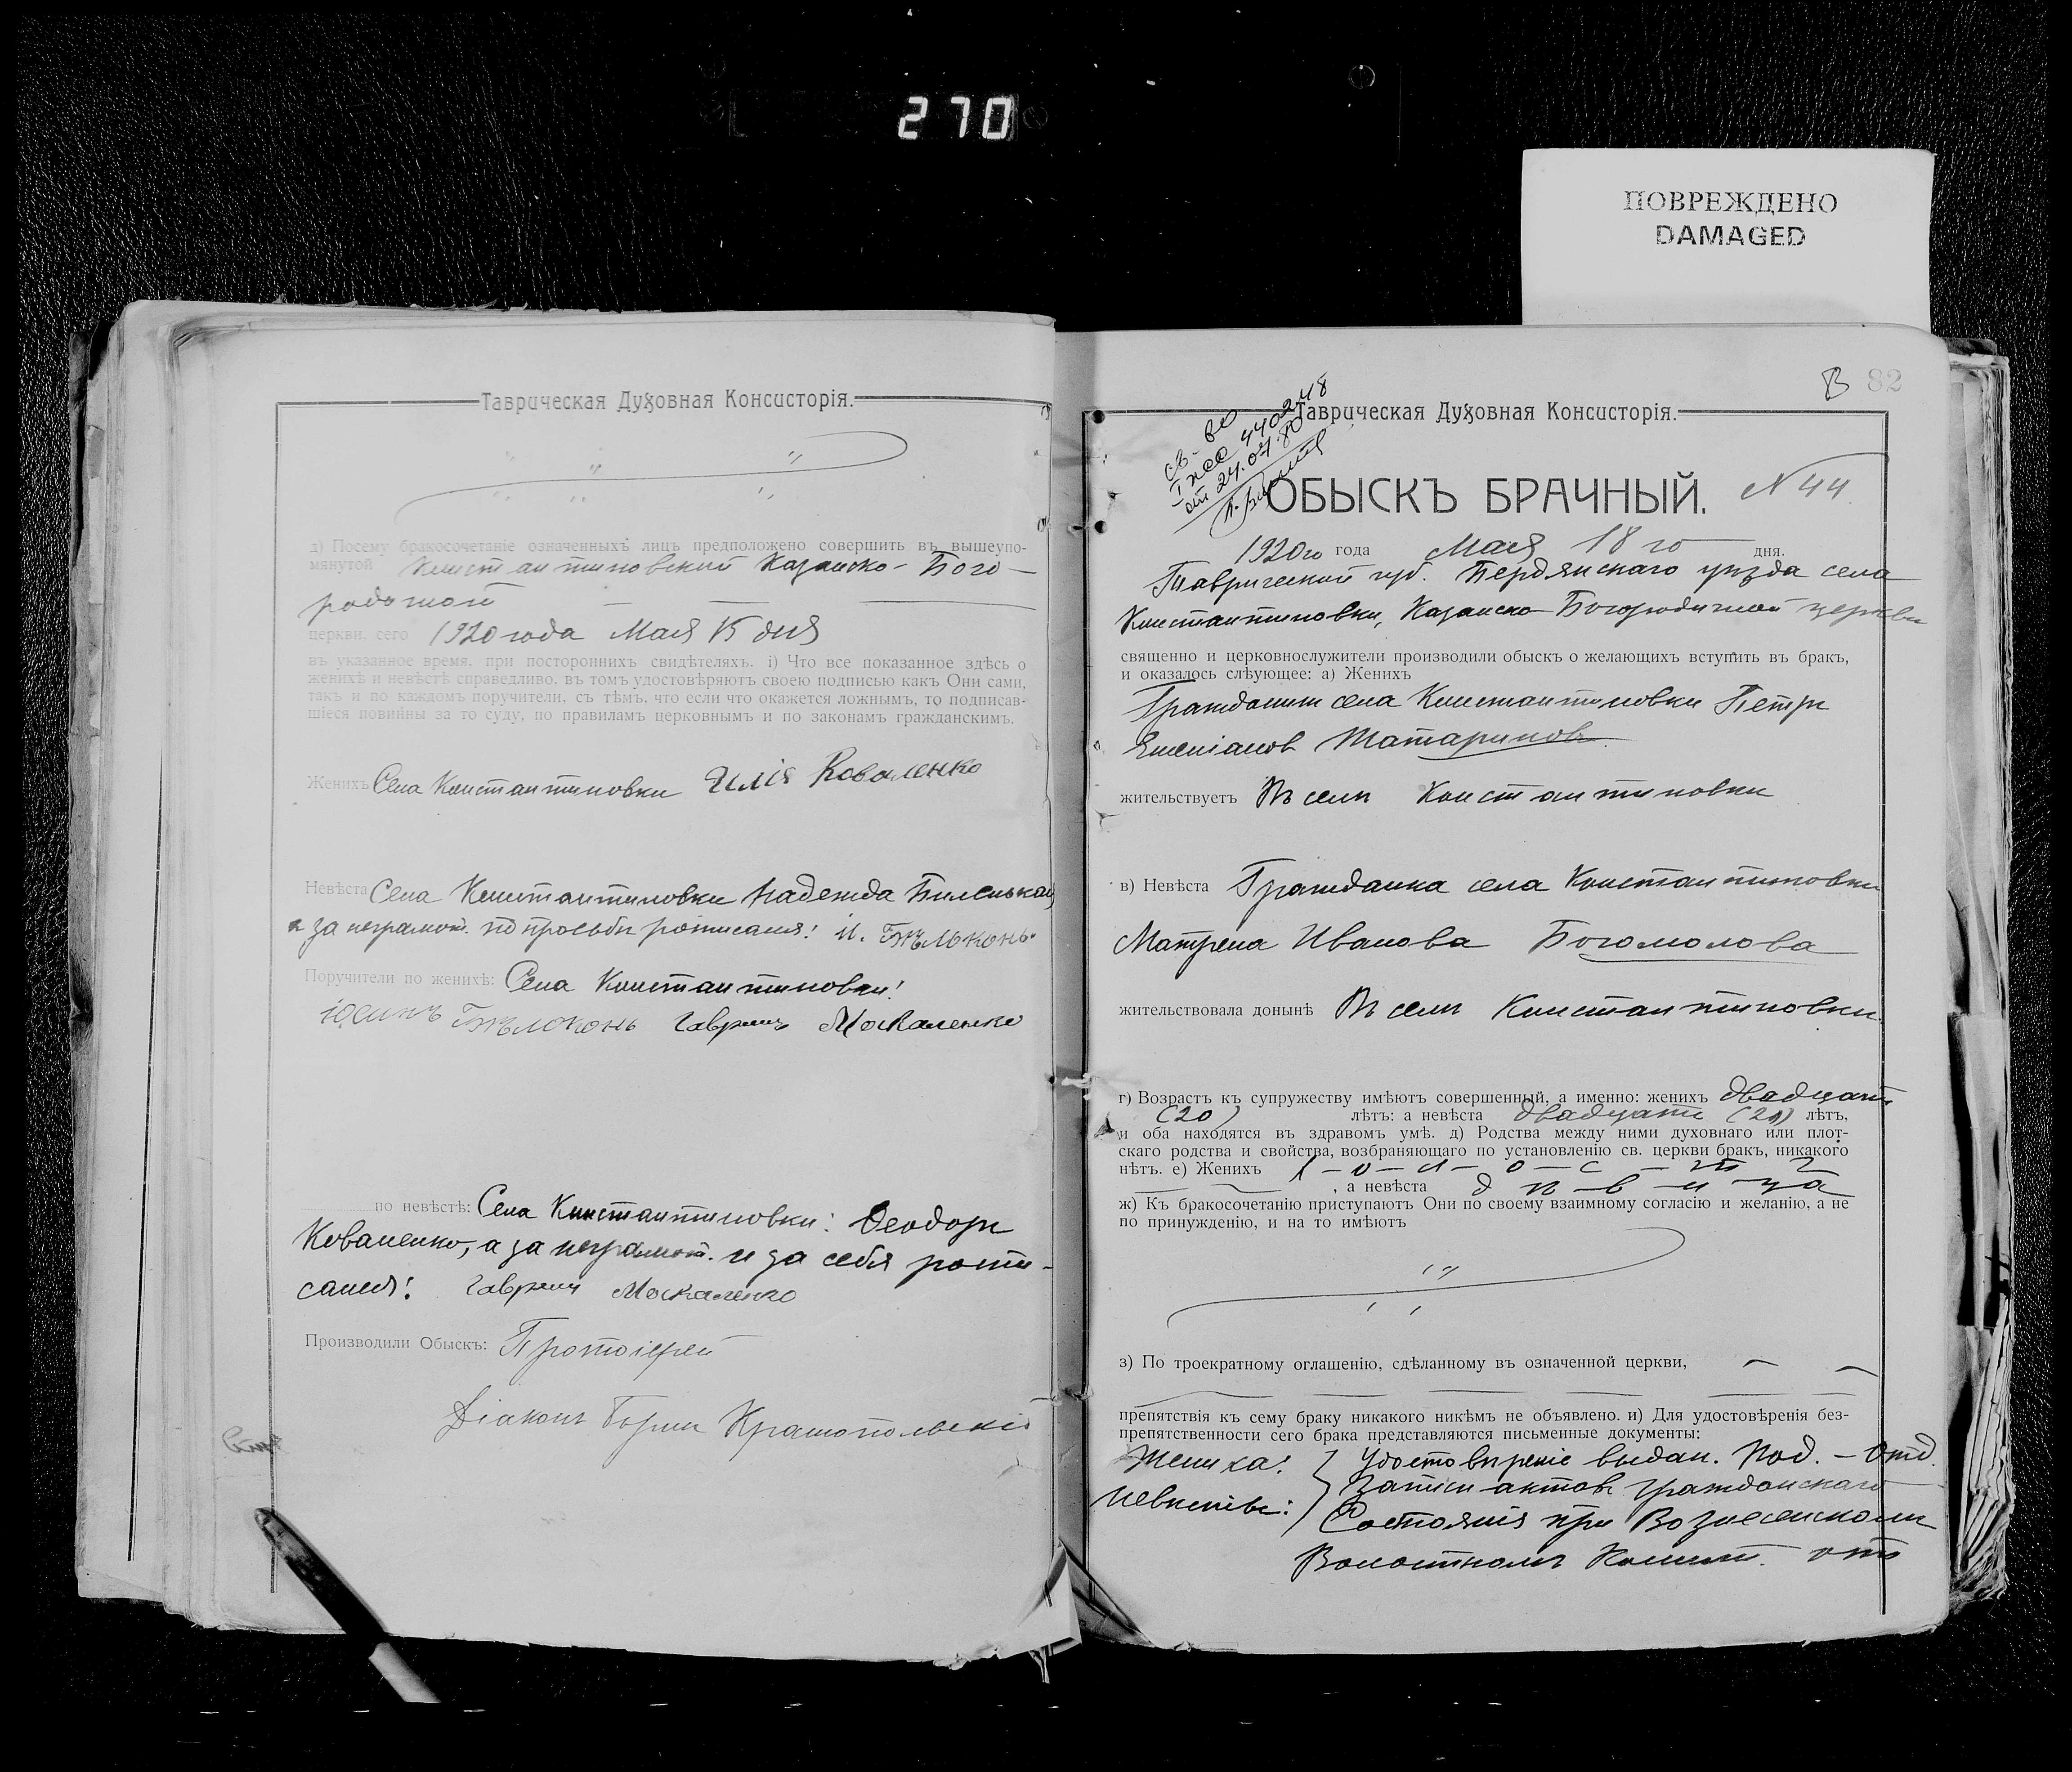 270
ПОВРЕЖДЕНО
DAMAGED
Таврическая Духовная Консисторія.
д) Посему бракосочетаніе означенныхъ лицъ предположено совершить въ вышеупо-
мянутой Константиновской Казанско-Бого-
родичной
церкви, сего 1920 года Мая 15 дня
въ указанное время, при постороннихъ свидѣтеляхъ. і) Что все показанное здѣсь о
женихѣ и невѣстѣ справедливо, въ томъ удостовѣряютъ своею подписью какъ Они сами,
такъ и по каждомъ поручители, съ тѣмъ, что если что окажется ложнымъ, то подписав-
шіеся повинны за то суду, по правиламъ церковнымъ и по законамъ гражданскимъ.
Женихъ Села Константиновки Илія Коваленко
Невѣста Села Константиновки Надежда Биленькая
а за неграмот. по просьбѣ росписался: І. Бѣлоконь
Поручители по женихѣ: Села Константиновки:
Іосипъ Бѣлоконь Гавріилъ Москаленко
по невѣстѣ: Села Константиновки: Ѳеодоръ
Коваленко, а за неграмот. и за себя роспи-
сался: Гавріилъ Москаленко
Производили Обыскъ: Протоіерей
Діаконъ Борисъ
82
Таврическая Духовная Консисторія.
ОБЫСКЪ БРАЧНЫЙ. N 44
1920 го года Мая 18 го дня.
Таврической губ. Бердянскаго уѣзда села
Константиновки, Казанско-Богородичной церкви
священно и церковнослужители производили обыскъ о желающихъ вступить въ бракъ,
и оказалось слѣующее: а) Женихъ
Гражданин села Константиновки Петръ
Татаринов
жительствуетъ Въ селѣ Константиновки
в) Невѣста Гражданка села Константиновки
Матрена Иванова Богомолова
жительствовала донынѣ Въ селѣ Константиновки
г) Возрастъ къ супружеству имѣютъ совершенный, а именно: женихъ двадцать
(20) лѣтъ: а невѣста двадцать лѣтъ,
и оба находятся въ здравомъ умѣ. д) Родства между ними духовнаго или плот-
скаго родства и свойства, возбраняющаго по установленію св. церкви бракъ, никакого
нѣтъ. е) Женихъ х-о-л-о-с-т
, а невѣста д ѣ-в-и-ца
ж) Къ бракосочетанію приступаютъ Они по своему взаимному согласію и желанію, а не
по принужденію, и на то имѣютъ
з) По троекратному оглашенію, сдѣланному въ означенной церкви,
препятствія къ сему браку никакого никѣмъ не объявлено. и) Для удостовѣренія без-
препятственности сего брака представляются письменные документы:
Жениха: Удостовѣреніе выдан. Под.-Отд.
Невѣсты: Записи актов гражданскаго
Состоянія при Вознесенском
Волостномъ Комит. отъ